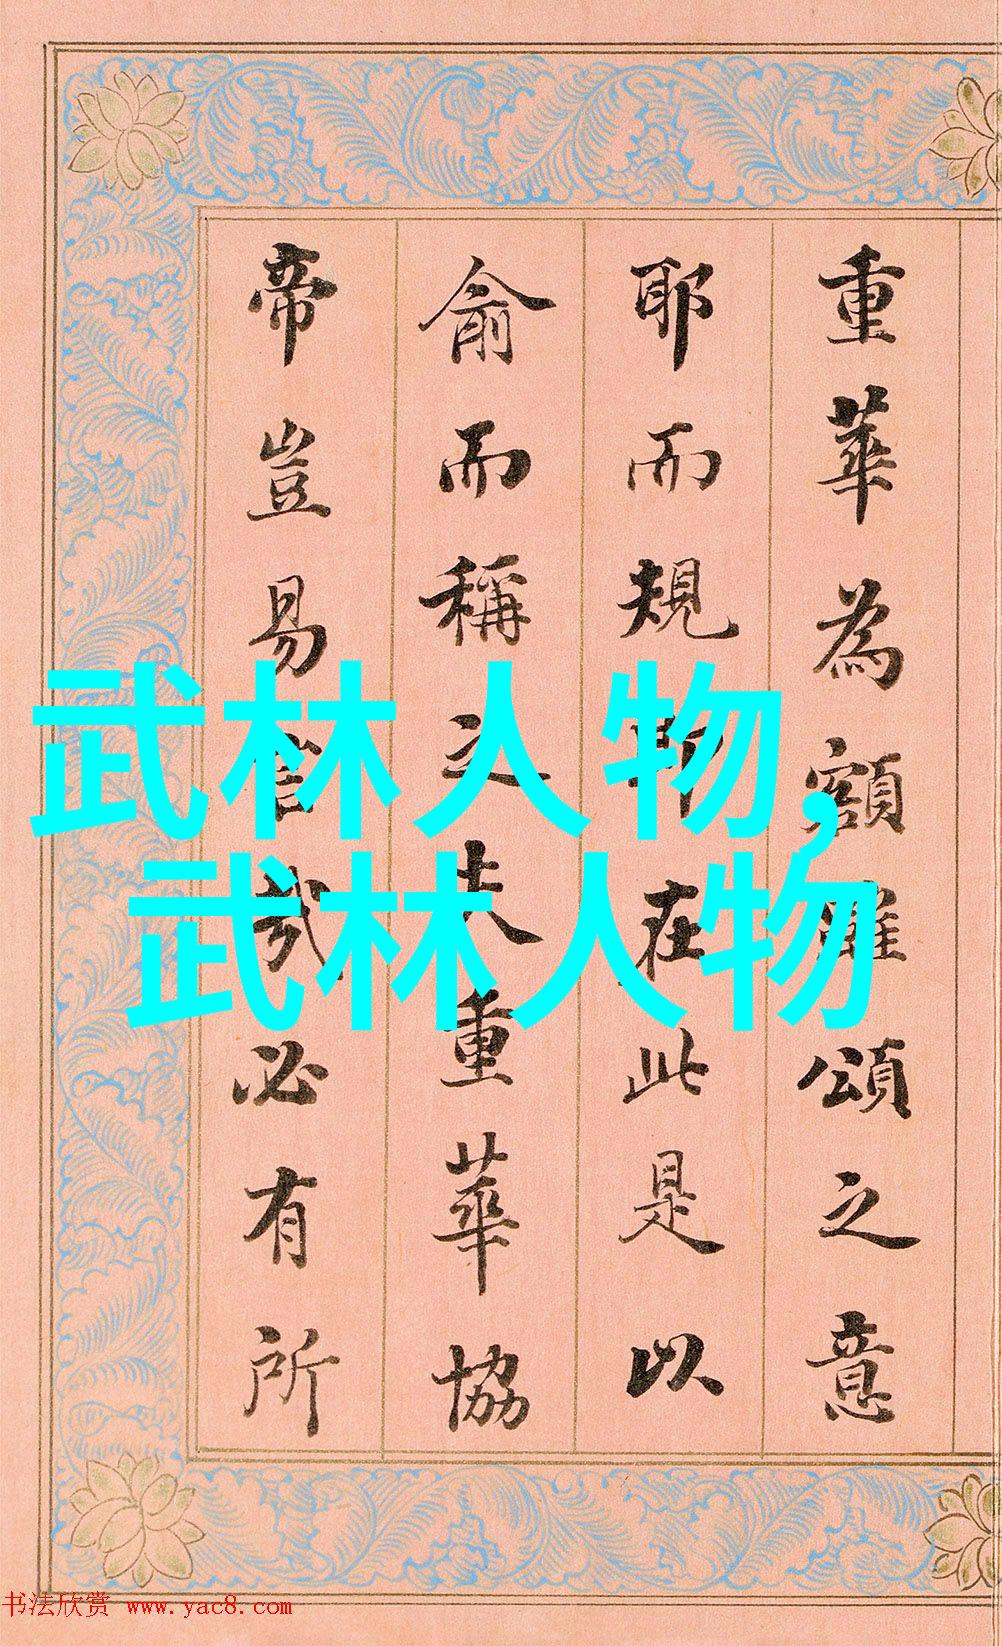 重華為額雖頌之意
耶而規即在此是以
俞而稱之夫重華協
帝豈易言哉必有所
武林人物,
武林人物
书法欣赏 www.yac8.com